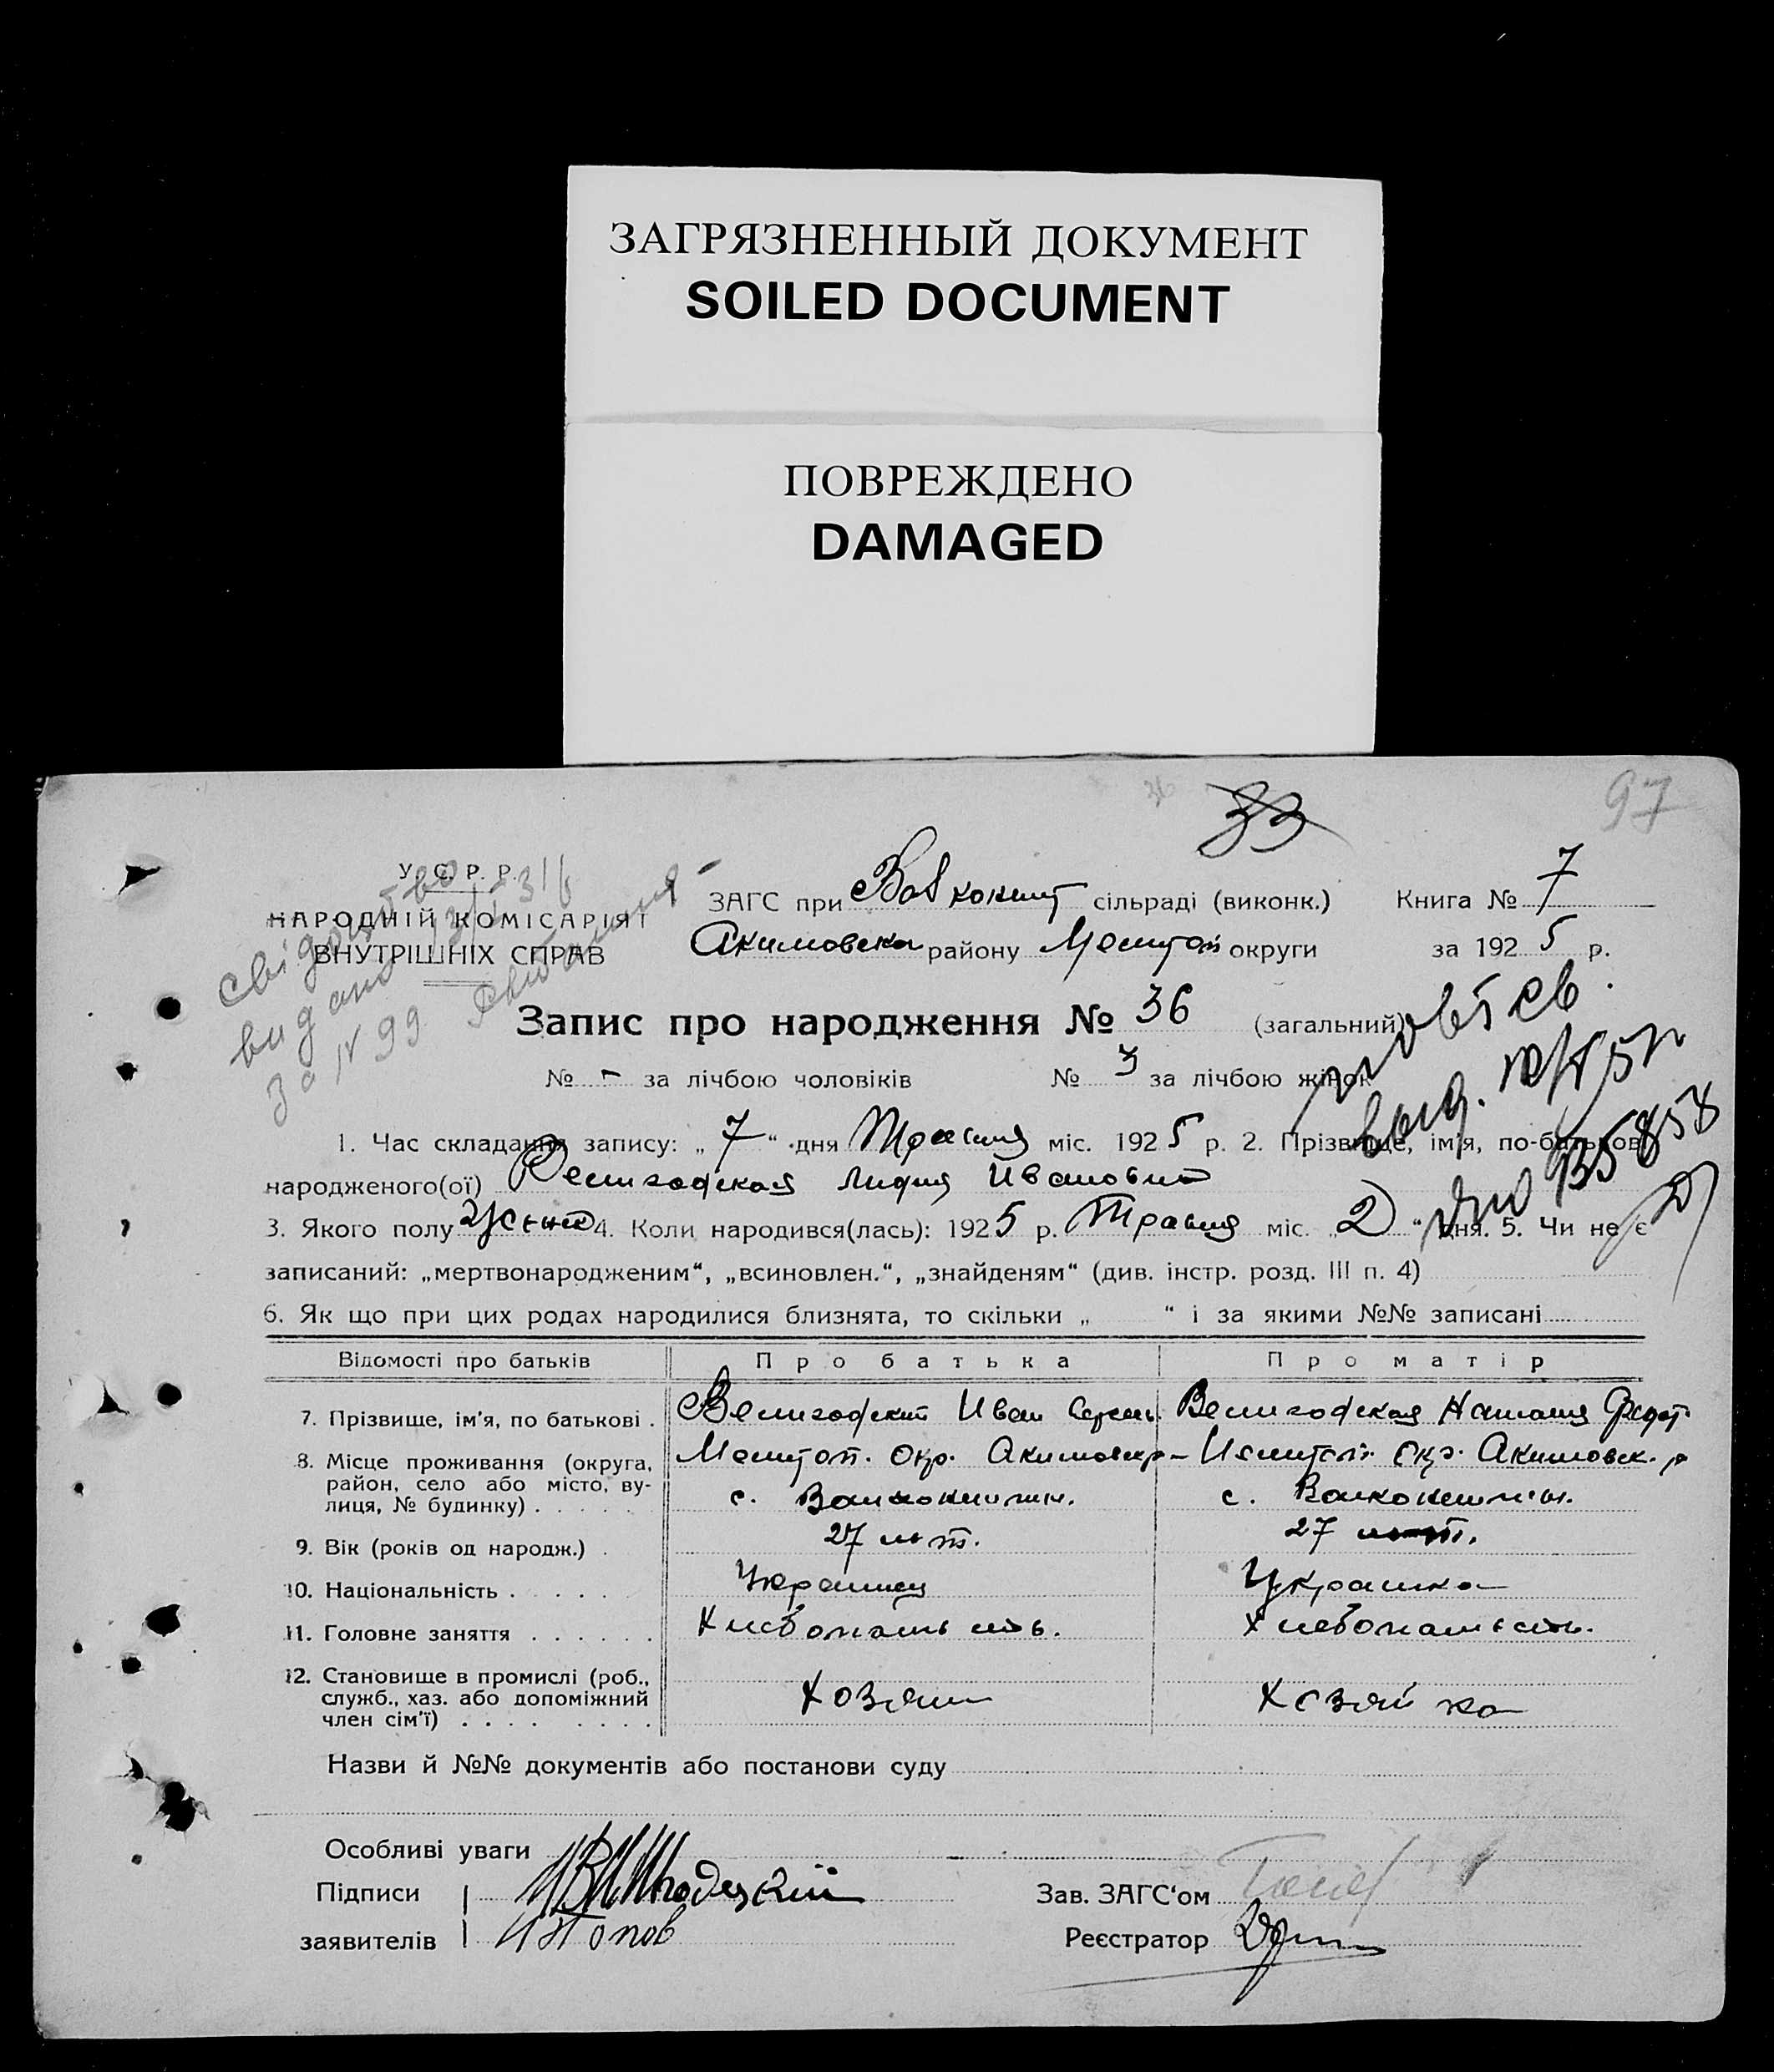 ЗАГРЯЗНЕННЫЙ ДОКУМЕНТ
SOILED DOCUMENT
ПОВРЕЖДЕНО
DAMAGED
33
97
У. С. Р. Р.
НАРОДНІЙ КОМІСАРІЯТ
ВНУТРІШНІХ СПРАВ
свідоцтво
видано
За № 99
ЗАГС при сільраді (виконк.) Книга № 7
Акимовска району Мелитоп округи за 1925 р.
Запис про народження № 36 (загальний)
№ - за лічбою чоловіків № 3 за лічбою жінок
повт св.
935858
1. Час складання запису: „7“ дня Травня міс. 1925 р. 2. Прізвище, ім'я, по-батькові
народженого(ої) Велигодская Лидия Ивановна
3. Якого полу 4. Коли народився(лась): 1925 р. Травня міс. „2“ дня. 5. Чи не є
записаний: „мертвонародженим“, „всиновлен.“, „знайденям“ (див. інстр. розд. III п. 4)
6. Як що при цих родах народилися близнята, то скільки „ “ і за якими №№ записані
Відомості про батьків Про батька Про матір
7. Прізвище, ім'я, по батькові . Велигодский Иван Велигодская Наталия Федот.
8. Місце проживання (округа, район, село або місто, вулиця, № будинку) . . . . . Мелитоп. Окр. Акимовск р- Мелитоп. Окр. Акимовск. р
с. с.
9. Вік (років од народж.) . 27 лет. 27 лет.
10. Національність . . . . Украинец Украинка
11. Головне заняття . . . . . . Хлебопашество. Хлебопашество.
12. Становище в промислі (роб., служб., хаз. або допоміжний член сім'ї) . . . . . . . . Хозяин Хозяйка
Назви й №№ документів або постанови суду
Особливі уваги
Підписи Зав. ЗАГС'ом
заявителів Реєстратор